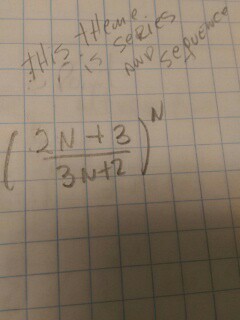 this theme
is series
and sequence
(2N+3/3N+2)^N